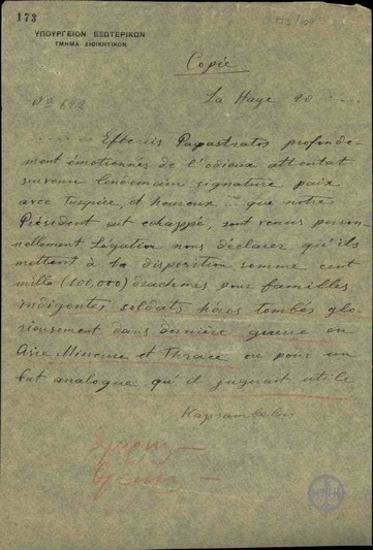 173
ΥΠΟΥΡΓΕΙΟΝ ΕΞΩΤΕΡΙΚΩΝ
ΤΜΗΜΑ ΔΙΟΙΚΗΤΙΚΟΝ
Copie
No 692
La Haye 20 .....
.... Efteris Papastratos profonde-
ment émotionnés de l'odieux attentat
survenu lendemain signature paix
avec Turquie, et heureux ... que notre
Président ait echappé, sont venus person-
nellement Légation nous déclarer qu'ils
mettent à ta disposition somme cent
mille (100,000) drachmes pour familles
indigentes soldats héros tombés glo-
rieusement dans dernière guerre en
Asie Mineure et Thrace ou pour un
but analogue qu'il jugerait utile
Kapsambelis